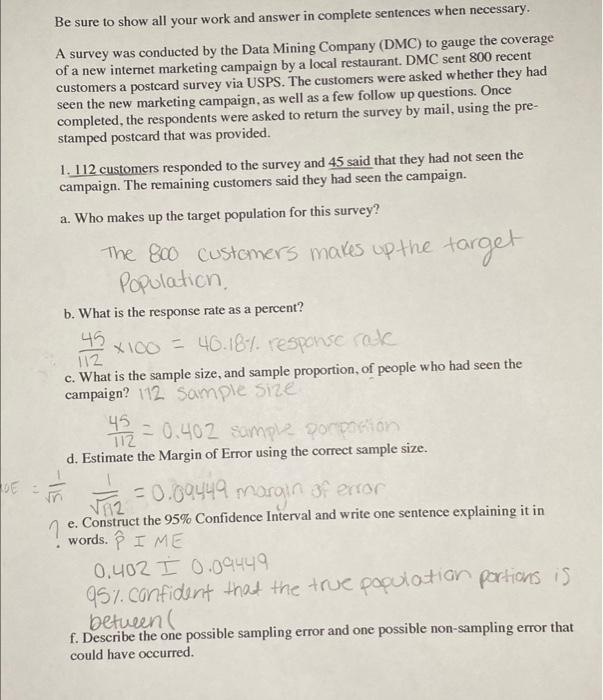 Be sure to show all your work and answer in complete sentences when necessary.
A survey was conducted by the Data Mining Company (DMC) to gauge the coverage
of a new internet marketing campaign by a local restaurant. DMC sent 800 recent
customers a postcard survey via USPS. The customers were asked whether they had
seen the new marketing campaign, as well as a few follow up questions. Once
completed, the respondents were asked to return the survey by mail, using the pre-
stamped postcard that was provided.
1. 112 customers responded to the survey and 45 said that they had not seen the
campaign. The remaining customers said they had seen the campaign.
a. Who makes up the target population for this survey?
The 800 customers makes up the target
Population.
b. What is the response rate as a percent?
45/112 x100 = 40.18%. response rate
c. What is the sample size, and sample proportion, of people who had seen the
campaign? 112 sample size
45/112 = 0.402 sample porportion
d. Estimate the Margin of Error using the correct sample size.
OE = 1/√n 1/√112 = 0.09449 margin of error
e. Construct the 95% Confidence Interval and write one sentence explaining it in
? words. p̂ ± ME
0.402 ± 0.09449
95%. confident that the true population portions is
between (
f. Describe the one possible sampling error and one possible non-sampling error that
could have occurred.